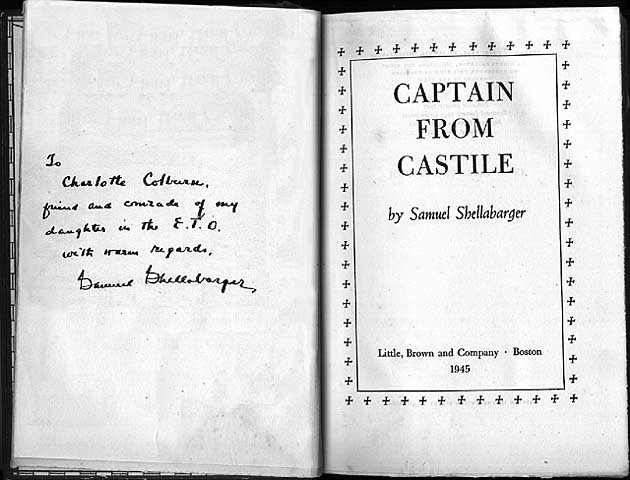 To
Charlotte Colburn,
friend and comrade of my
daughter in the E.T.O.
with warm regards,
Samuel Shellabarger,
CAPTAIN
FROM
CASTILE
by Samuel Shellabarger
Little, Brown and Company · Boston
1945